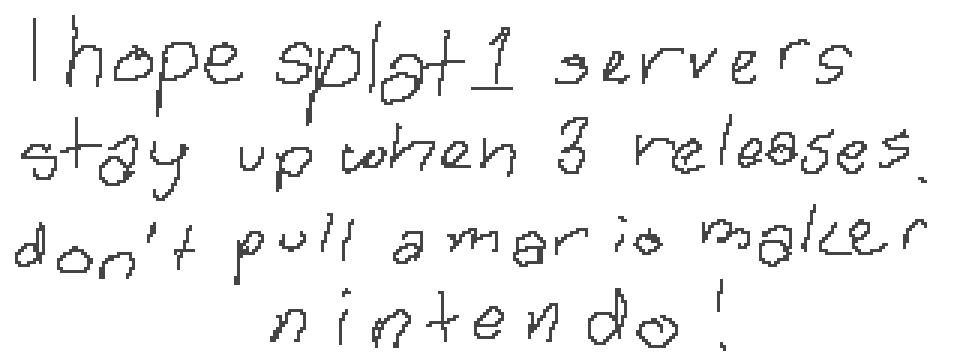 I hope splat 1 servers
stay up when 3 releases.
don't pull a mario maker
nintendo!